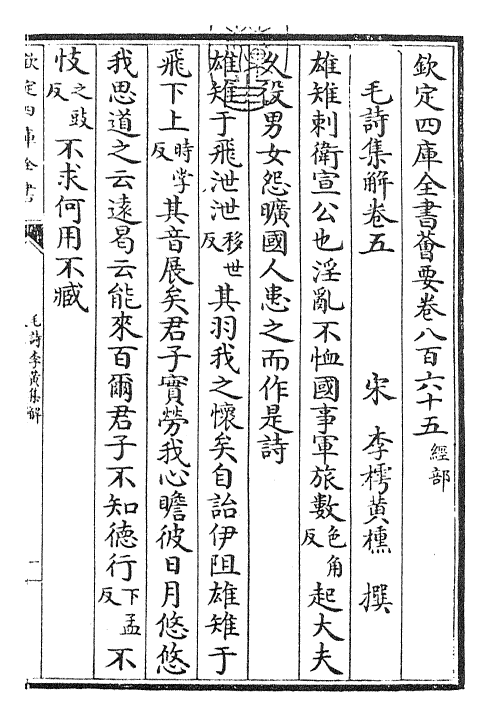 欽定四庫全書薈要卷八百六十五經部
毛詩集解卷五
宋 李樗黄櫄 撰
雄雉刺衛宣公也淫亂不恤國事軍旅數色角反起大夫
久役男女怨曠國人患之而作是詩
雄雉于飛泄泄移世反其羽我之懷矣自詒伊阻雄雉于
飛下上時掌反其音展矣君子實勞我心瞻彼日月悠悠
我思道之云遠曷云能來百爾君子不知德行下孟反不
忮之豉反不求何用不臧
欽定四庫全書
毛詩李黄集解
二